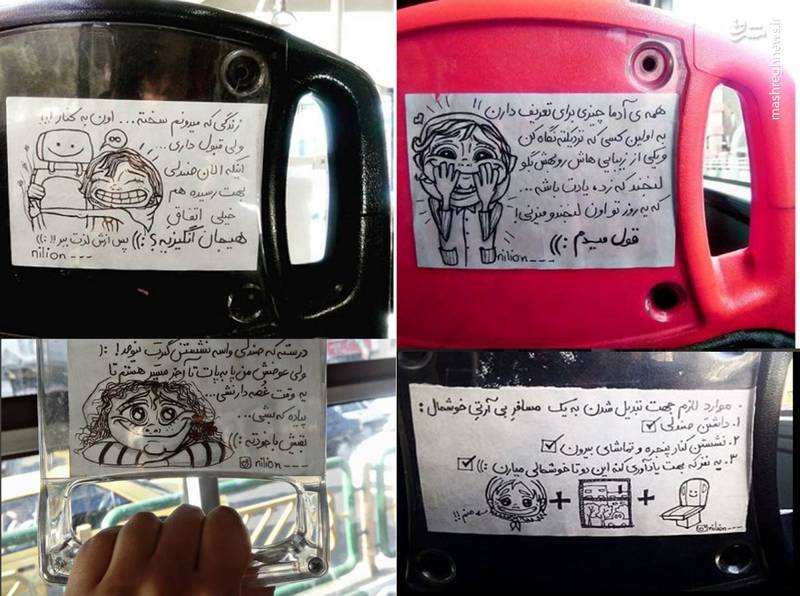 زندگی که میدونم سخته... اون به کنار!!!
ولی قبول داری...
اینکه الان صندلی
بهت رسیده هم
خیلی اتفاق
هیجان انگیزیه؟ :)) پس ازش لذت ببر!! :))
nilion_ _ _
همه ی آدما چیزی برای تعریف دارن!!
به اولین کسی که نزدیکته نگاه کن
و یکی از زیبایی هاش رو بهش بگو
لبخند که زد، یادت باشه...
که یه روز تو اون لبخندو میزنی!
قول میدم :))
nilion_ _ _
درسته که صندلی واسه نشستن گیرت نیومد! :(
ولی عوضش من پا به پات تا آخر مسیر هستم تا
یه وقت غصه دار نشی...
پیاده که بشی...
بقیش با خودته :))
nilion_ _ _
موارد لازم جهت تبدیل شدن به یک مسافر بی آرتی خوشحال:
۱. داشتن صندلی
۲. نشستن کنار پنجره و تماشای بیرون
۳. یه نفر که بهت یادآوری کنه این دو تا خوشحالی میارن :))
منم!!
+ +
@nilion_ _ _
mashreghnews.ir